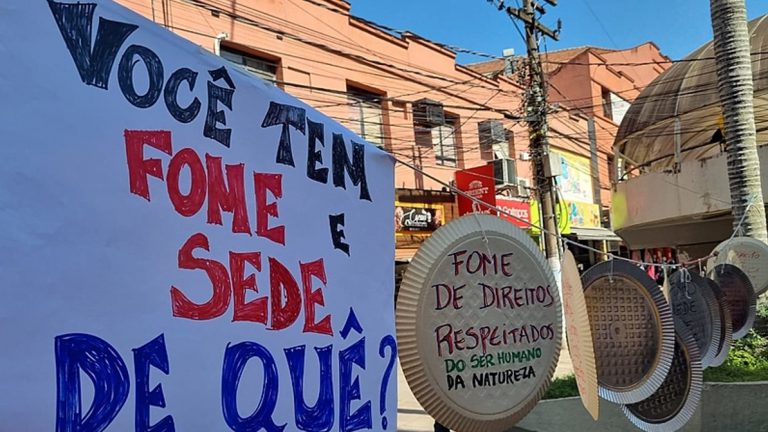 VOCÊ TEM
FOME E
SEDE
DE QUÊ?
FOME
DE DIREITOS
RESPEITADOS
DO SER HUMANO
DA NATUREZA